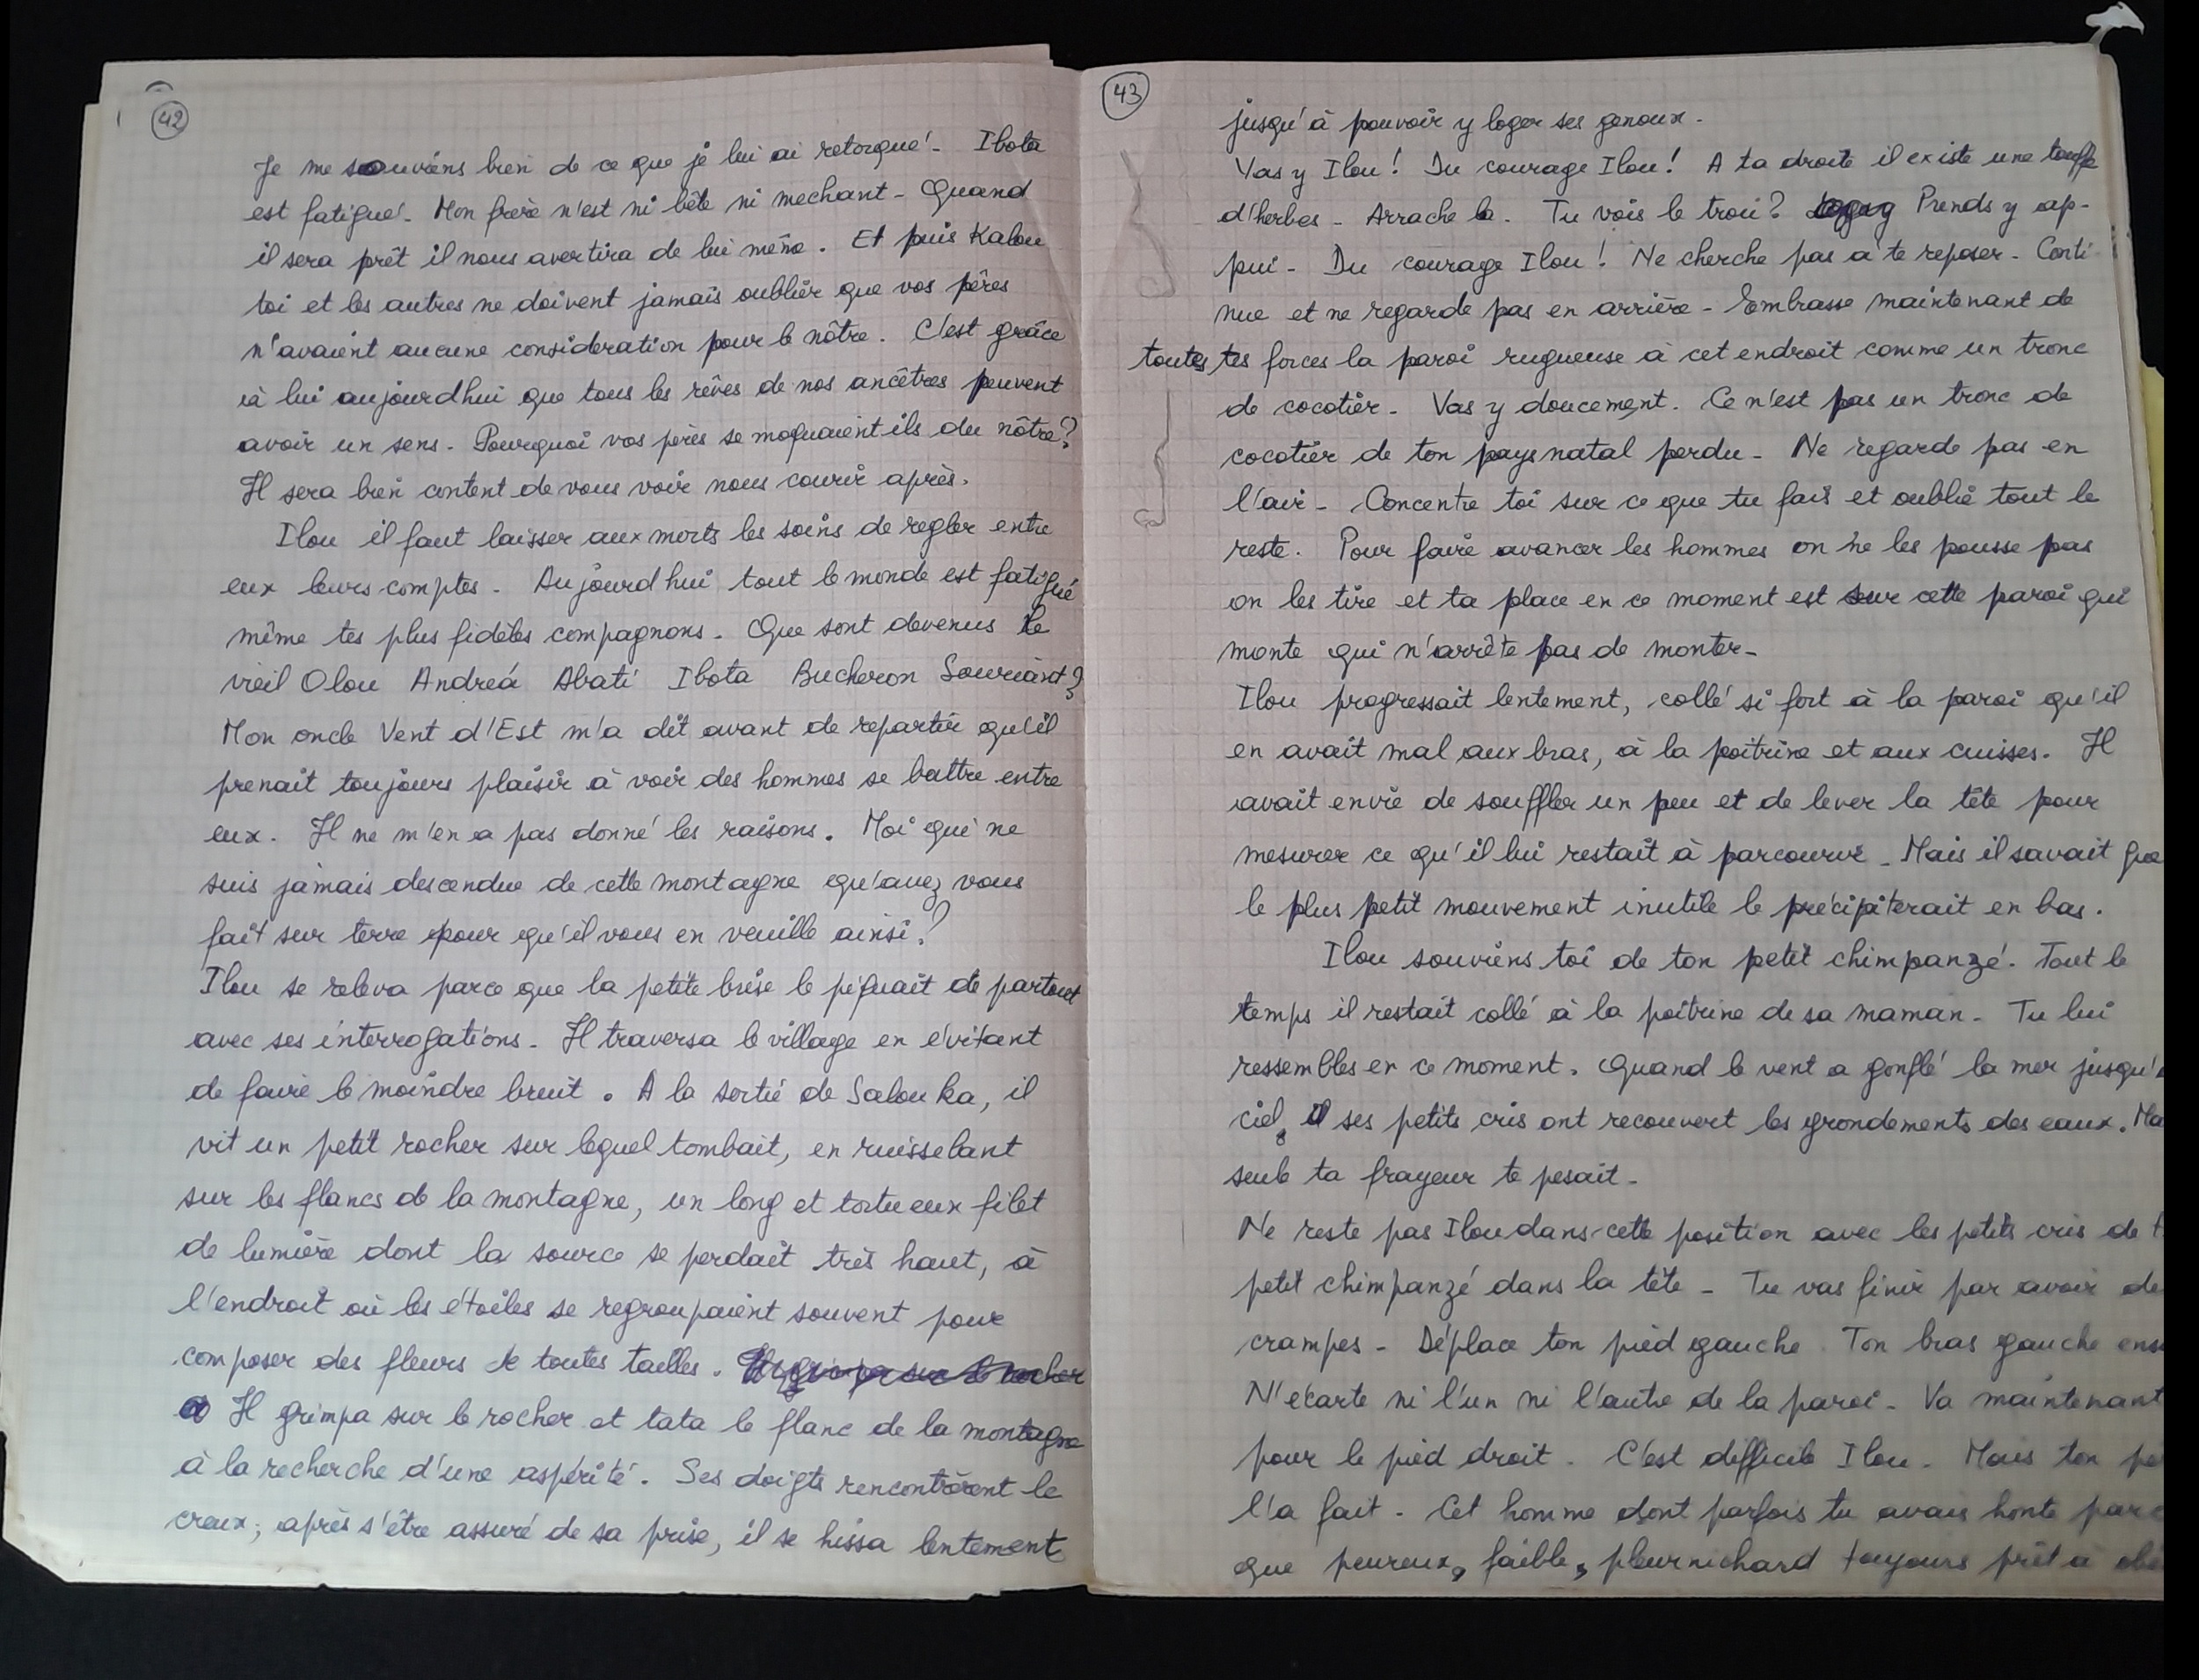 42
Je me souviens bien de ce que je lui ai retorqué. Ibota
est fatigué. Mon frère n'est ni bête ni mechant. Quand
il sera prêt il nous avertira de lui même. Et puis Kalou
toi et les autres ne doivent jamais oublier que vos pères
n'avaient aucune consideration pour le nôtre. C'est grâce
à lui aujourdhui que tous les rêves de nos ancêtres peuvent
avoir un sens. Pourquoi vos pères se moquaient ils du nôtre?
Il sera bien content de vous voir nous courir après.
Ilou il faut laisser aux morts les soins de regler entre
eux leurs comptes. Aujourd hui tout le monde est fatigué
même tes plus fidèles compagnons. Que sont devenus le
vieil Olou Andréa Abati Ibota Bucheron Souriant?
Mon oncle Vent d'Est m'a dit avant de repartir qu'il
prenait toujours plaisir à voir des hommes se battre entre
eux. Il ne m'en a pas donné les raisons. Moi qui ne
suis jamais descendue de cette montagne qu'avez vous
fait sur terre pour qu'il vous en veuille ainsi?
Ilou se releva parce que la petite brise le piquait de partout
avec ses interrogations. Il traversa le village en évitant
de faire le moindre bruit. A la sortie de Salouka, il
vit un petit rocher sur lequel tombait, en ruisselant
sur les flancs de la montagne, un long et tortueux filet
de lumière dont la source se perdait très haut, à
l'endroit où les étoiles se regroupaient souvent pour
composer des fleurs de toutes tailles.
Il grimpa sur le rocher et tata le flanc de la montagne
à la recherche d'une aspérité. Ses doigts rencontrèrent le
creux; après s'être assuré de sa prise, il se hissa lentement
43
jusqu'à pouvoir y loger ses genoux.
Vas y Ilou! Du courage Ilou! A ta droite il existe une touffe
d'herbes. Arrache la. Tu vois le trou? Prends y ap-
pui. Du courage Ilou! Ne cherche pas à te reposer. Conti-
nue et ne regarde pas en arrière. Embrasse maintenant de
toutes tes forces la paroi rugueuse à cet endroit comme un tronc
de cocotier. Vas y doucement. Ce n'est pas un tronc de
cocotier de ton pays natal perdu. Ne regarde pas en
l'air. Concentre toi sur ce que tu fais et oublie tout le
reste. Pour faire avancer les hommes on ne les pousse pas
on les tire et ta place en ce moment est sur cette paroi qui
monte qui n'arrête pas de monter.
Ilou progressait lentement, collé si fort à la paroi qu'il
en avait mal aux bras, à la poitrine et aux cuisses. Il
avait envie de souffler un peu et de lever la tête pour
mesurer ce qu'il lui restait à parcourir. Mais il savait que
le plus petit mouvement inutile le précipiterait en bas.
Ilou souviens toi de ton petit chimpanzé. Tout le
temps il restait collé à la poitrine de sa maman. Tu lui
ressembles en ce moment. Quand le vent a gonflé la mer jusqu'
ciel, ses petits cris ont recouvert les grondements des eaux. Ma
seule ta frayeur te pesait.
Ne reste pas Ilou dans cette position avec les petits cris de t
petit chimpanzé dans la tête. Tu vas finir par avoir de
crampes. Déplace ton pied gauche. Ton bras gauche ens
N'écarte ni l'un ni l'autre de la paroi. Va maintenant
pour le pied droit. C'est difficile Ilou. Mais ton pè
l'a fait. Cet homme dont parfois tu avais honte parc
que peureux, faible, pleurnichard toujours prêt à obé